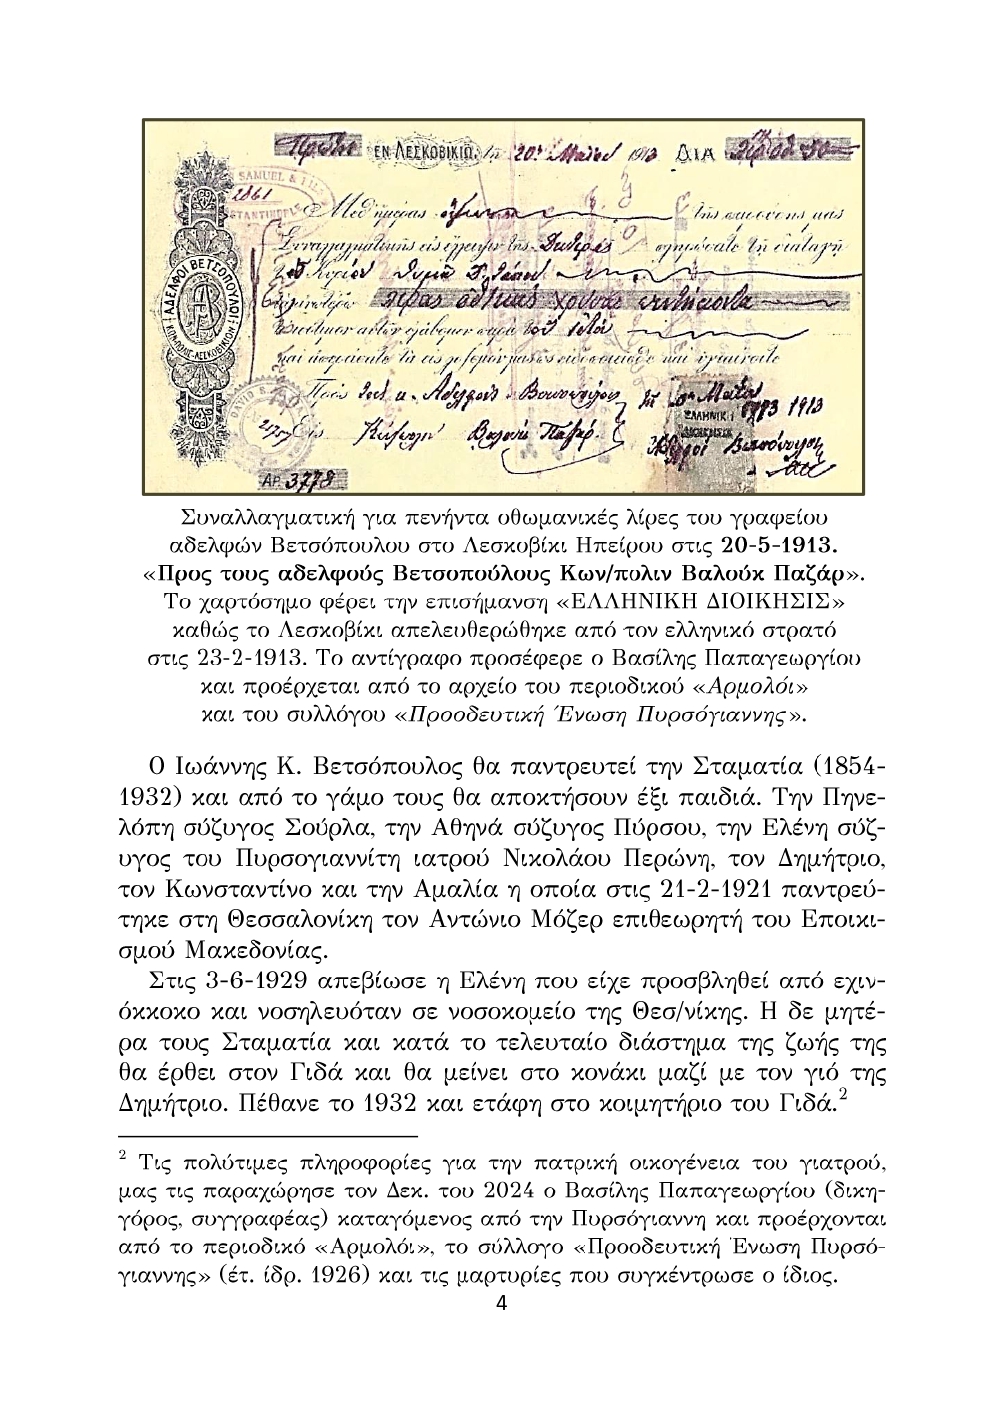 Πρώτη ΕΝ ΛΕΣΚΟΒΙΚΙΩ, τη 20η Μαΐου 1913 ΔΙΑ
SAMUEL &
2861
Μεθ' ημέρας της παρούσης μας
Συναλλαγματικής εις έλλειψιν της Δευτέρας πληρώσατε τη διαταγή
Κυρίου Θωμά
λίρας χρυσάς πενήντα
ΑΔΕΛΦΟΙ ΒΕΤΣΟΠΟΥΛΟΙ
ΚΩΝ/ΠΟΛΙΣ-ΛΕΣΚΟΒΙΚΙΟΝ
και απεράσατε τα εις λ/σμόν μας
Προς τους κ. Αδελφούς Βετσοπούλους
1913
ΕΛΛΗΝΙΚΗ
ΔΙΟΙΚΗΣΙΣ
DAVID
Εις Κων/πολιν Βαλούκ Παζάρ.
ΑΡ. 3778
Συναλλαγματική για πενήντα οθωμανικές λίρες του γραφείου
αδελφών Βετσόπουλου στο Λεσκοβίκι Ηπείρου στις 20-5-1913.
«Προς τους αδελφούς Βετσοπούλους Κων/πολιν Βαλούκ Παζάρ».
Το χαρτόσημο φέρει την επισήμανση «ΕΛΛΗΝΙΚΗ ΔΙΟΙΚΗΣΙΣ»
καθώς το Λεσκοβίκι απελευθερώθηκε από τον ελληνικό στρατό
στις 23-2-1913. Το αντίγραφο προσέφερε ο Βασίλης Παπαγεωργίου
και προέρχεται από το αρχείο του περιοδικού «Αρμολόι»
και του συλλόγου «Προοδευτική Ένωση Πυρσόγιαννης».
Ο Ιωάννης Κ. Βετσόπουλος θα παντρευτεί την Σταματία (1854-
1932) και από το γάμο τους θα αποκτήσουν έξι παιδιά. Την Πηνε-
λόπη σύζυγος Σούρλα, την Αθηνά σύζυγος Πύρσου, την Ελένη σύζ-
υγος του Πυρσογιαννίτη ιατρού Νικολάου Περώνη, τον Δημήτριο,
τον Κωνσταντίνο και την Αμαλία η οποία στις 21-2-1921 παντρεύ-
τηκε στη Θεσσαλονίκη τον Αντώνιο Μόζερ επιθεωρητή του Εποικι-
σμού Μακεδονίας.
Στις 3-6-1929 απεβίωσε η Ελένη που είχε προσβληθεί από εχιν-
όκκοκο και νοσηλευόταν σε νοσοκομείο της Θεσ/νίκης. Η δε μητέ-
ρα τους Σταματία και κατά το τελευταίο διάστημα της ζωής της
θα έρθει στον Γιδά και θα μείνει στο κονάκι μαζί με τον γιό της
Δημήτριο. Πέθανε το 1932 και ετάφη στο κοιμητήριο του Γιδά.²
² Τις πολύτιμες πληροφορίες για την πατρική οικογένεια του γιατρού,
μας τις παραχώρησε τον Δεκ. του 2024 ο Βασίλης Παπαγεωργίου (δικη-
γόρος, συγγραφέας) καταγόμενος από την Πυρσόγιαννη και προέρχονται
από το περιοδικό «Αρμολόι», το σύλλογο «Προοδευτική Ένωση Πυρσό-
γιαννης» (έτ. ίδρ. 1926) και τις μαρτυρίες που συγκέντρωσε ο ίδιος.
4